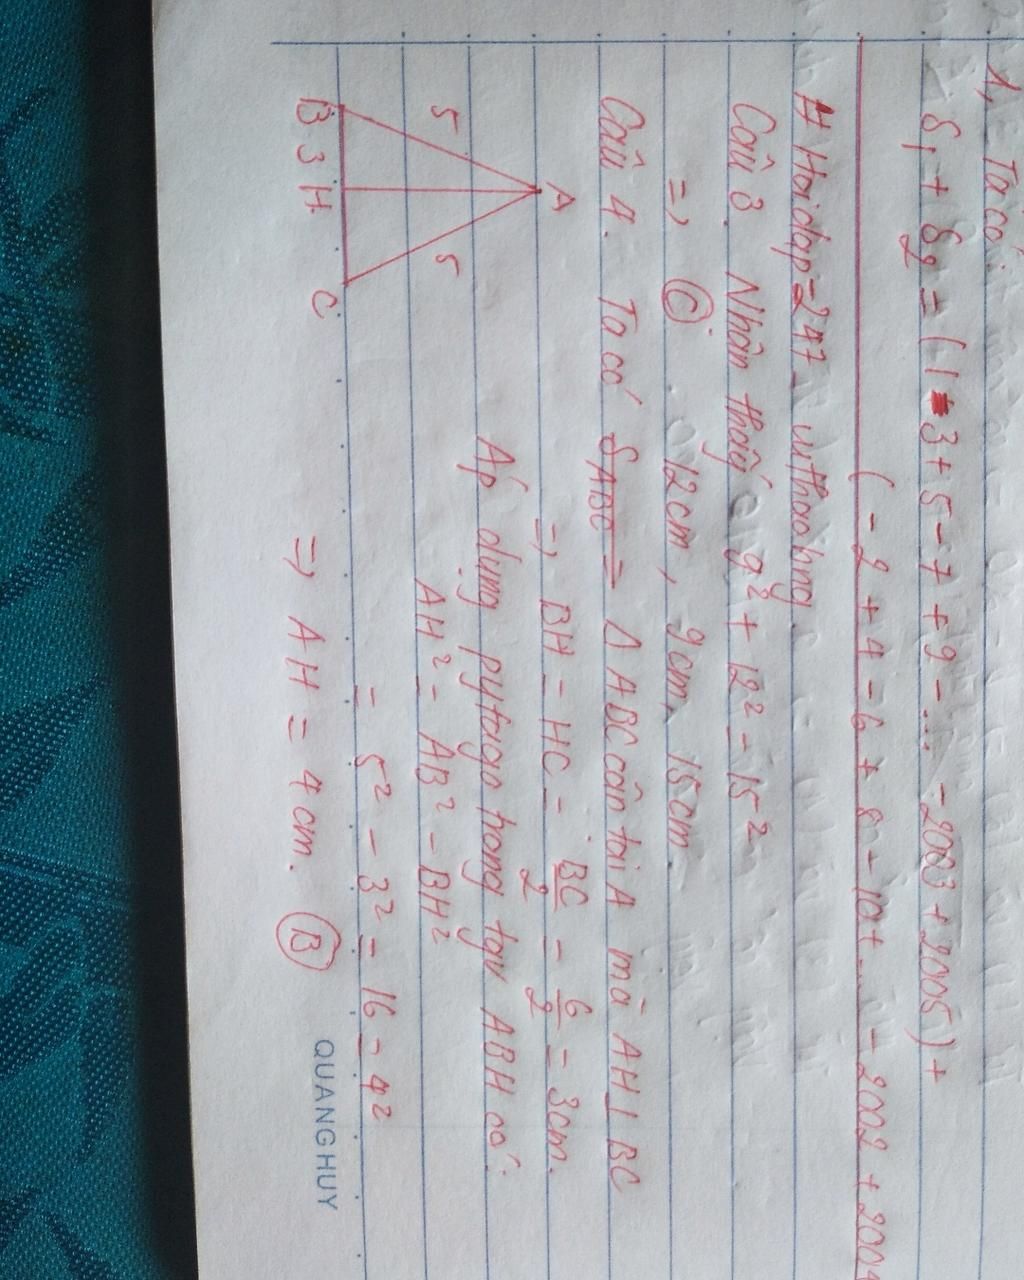 1, Ta có:
S₁ + S₂ = (1 - 3 + 5 - 7 + 9 - ... - 2003 + 2005) +
(-2 + 4 - 6 + 8 - 10 + ... - 2002 + 2004
# Hoidap247 - nthaohng.
Câu 3. Nhận thấy 9² + 12² = 15²
=> C 12cm, 9cm, 15cm
Câu 4. Ta có S_ABC = Δ ABC cân tại A mà AH ⊥ BC
=> BH = HC = BC/2 = 6/2 = 3cm.
Áp dụng pytago trong tgv ABH có:
AH² = AB² - BH²
= 5² - 3² = 16 = 4²
=> AH = 4cm. B
A
5 5
B 3 H C
QUANG HUY